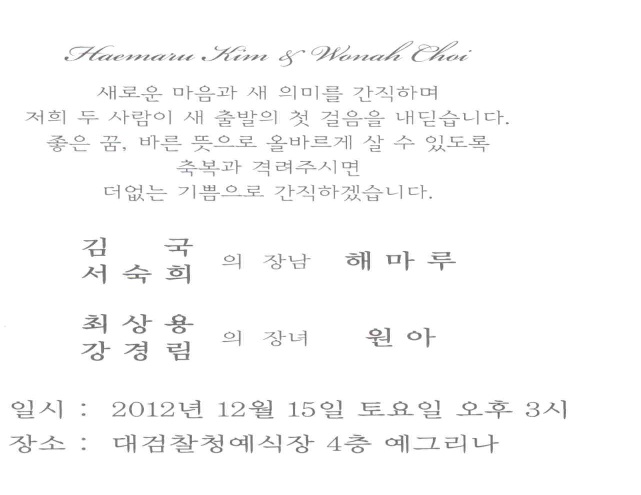 Haemaru Kim & Wonah Choi
새로운 마음과 새 의미를 간직하며
저희 두 사람이 새 출발의 첫 걸음을 내딛습니다.
좋은 꿈, 바른 뜻으로 올바르게 살 수 있도록
축복과 격려주시면
더없는 기쁨으로 간직하겠습니다.
김 국
서 숙 희 의 장남 해 마 루
최 상 용
강 경 림 의 장녀 원 아
일시 : 2012년 12월 15일 토요일 오후 3시
장소 : 대검찰청예식장 4층 예그리나